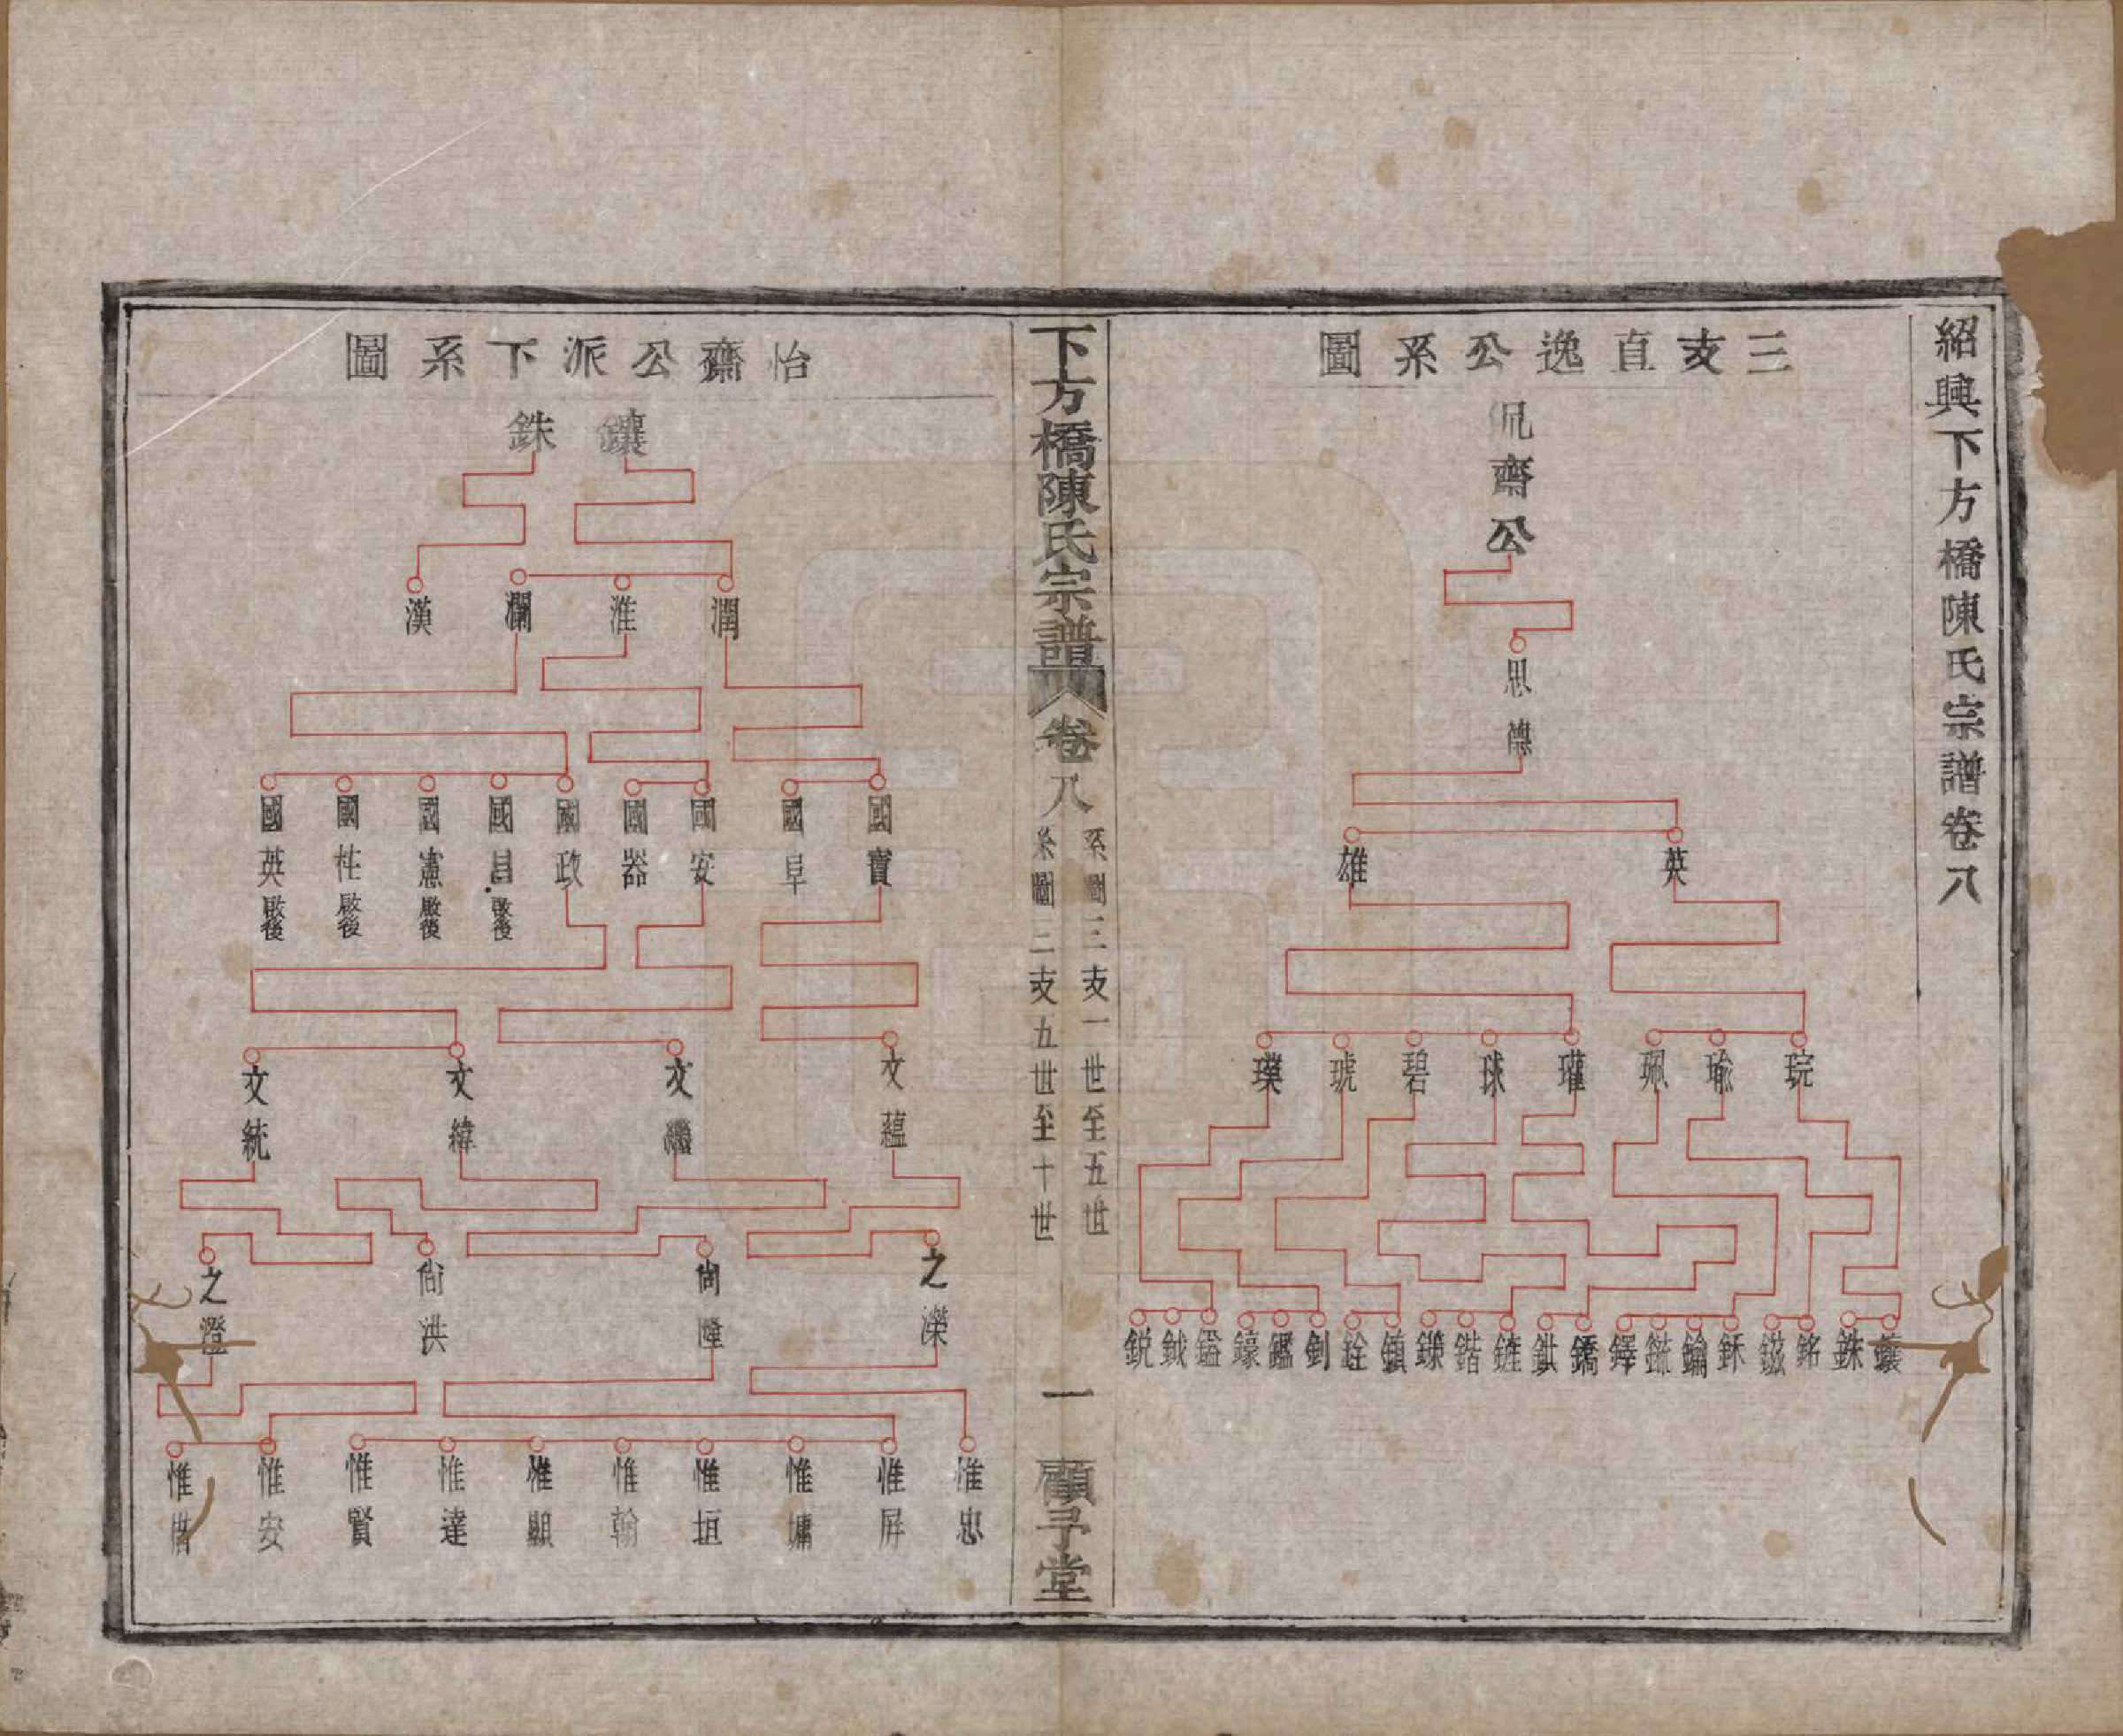 紹興下方橋陳氏宗譜卷八
三支直逸公系圖
侃齋公
思德
英 雄
琓 瑜 珮 瓘 球 碧 琥 璞
鑲 銖 銘 鎡 鉌 鑰 鐩 鐸 鐈 鉷 鏟 鍇 鑅 鎮 銓 釗 鑑 鐌 鎰 鉞 銳
下方橋陳氏宗譜
卷八
系圖三支一世至五世
系圖二支五世至十世
一
顧予堂
怡齋公派下系圖
鑲 銖
潤 淮 瀾 漢
國寶 國阜 國安 國器 國政 國昌啟後 國憲啟後 國性啟後 國英啟後
文蘊 文繼 文緯 文統
之濚 尚隆 尚洪 之澄
惟忠 惟屏 惟墉 惟垣 惟翰 惟顯 惟達 惟賢 惟安 惟